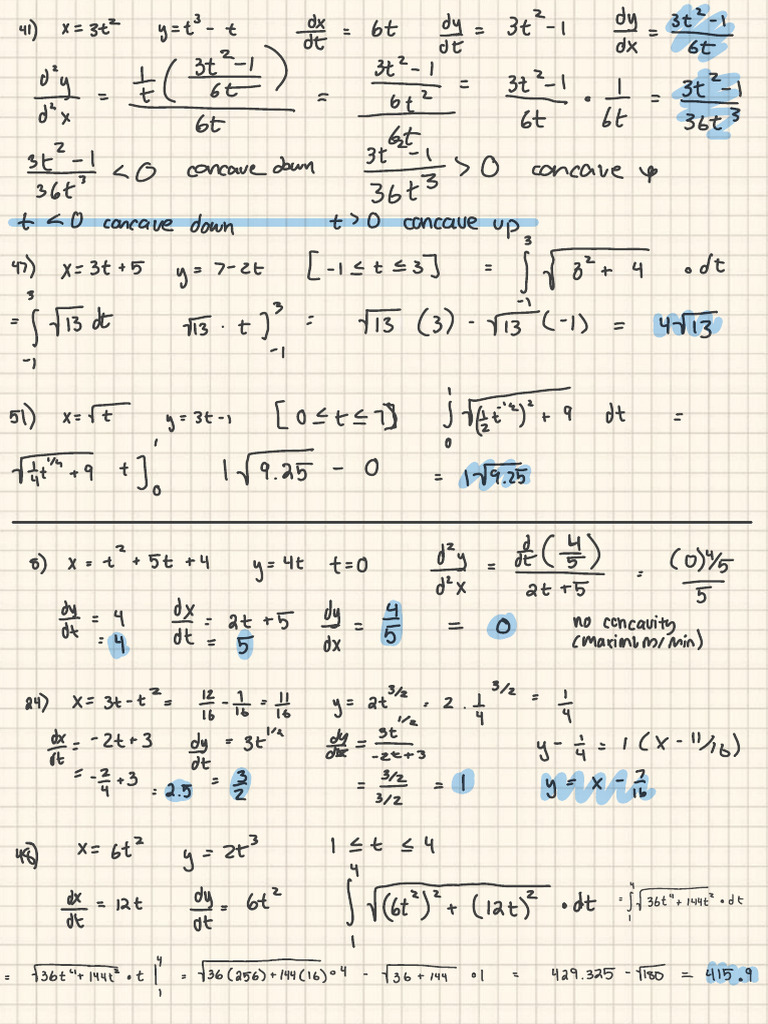 41) x = 3t² y = t³ - t dx/dt = 6t dy/dt = 3t² - 1 dy/dx = (3t² - 1)/(6t)
d²y/d²x = (1/t ((3t² - 1)/(6t)))/(6t) = ((3t² - 1)/(6t²))/(6t) = (3t² - 1)/(6t) · 1/(6t) = (3t² - 1)/(36t³)
(3t² - 1)/(36t³) < 0 concave down (3t² - 1)/(36t³) > 0 concave up
t < 0 concave down t > 0 concave up
47) x = 3t + 5 y = 7 - 2t [-1 ≤ t ≤ 3] = ∫₋₁³ √(3² + 4) · dt
= ∫₋₁³ √13 dt √13 · t]₋₁³ = √13 (3) - √13 (-1) = 4√13
51) x = √t y = 3t - 1 [0 ≤ t ≤ 1] ∫₀¹ √((1/2 t^(-1/2))² + 9) dt =
√(1/4 t^(1/4) + 9) t]₀¹ 1√9.25 - 0 = 1√9.25
8) x = t² + 5t + 4 y = 4t t = 0 d²y/d²x = (d/dt (4/5))/(2t + 5) = ((0)4/5)/5
dy/dt = 4 = 4 dx/dt = 2t + 5 = 5 dy/dx = 4/5 = 0 no concavity (maximum/min)
24) x = 3t - t² = 12/16 - 1/16 = 11/16 y = 2t^(3/2) = 2 · 1/4^(3/2) = 1/4
dx/dt = -2t + 3 dy/dt = 3t^(1/2) dy/dx = 3t^(1/2)/(-2t + 3) y - 1/4 = 1 (x - 11/16)
= -2/4 + 3 = 2.5 = 3/2 = (3/2)/(3/2) = 1 y = x - 7/16
48) x = 6t² y = 2t³ 1 ≤ t ≤ 4
dx/dt = 12t dy/dt = 6t² ∫₁⁴ √((6t²)² + (12t)²) · dt = ∫₁⁴ √(36t⁴ + 144t²) · dt
= √(36t⁴ + 144t²) · t |₁⁴ = √(36(256) + 144(16)) · 4 - √(36 + 144) · 1 = 429.325 - √180 = 415.9